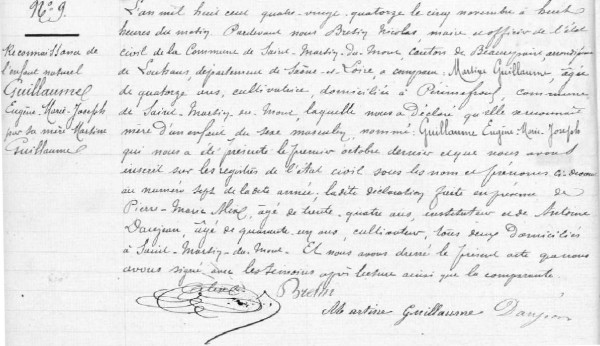 N° 9.
Reconnaissance de
l'enfant naturel
Guillaume
Eugène-Marie-Joseph
par sa mère Martine
Guillaume
L'an mil huit cent quatre-vingt quatorze le cinq novembre à huit
heures du matin Pardevant nous Bretin Nicolas, maire et officier de l'état
civil de la Commune de Saint-Martin-du-Mont, canton de Beaurepaire, arrondissement
de Louhans, département de Saône-et-Loire, a comparu Martine Guillaume, âgée
de quatorze ans, cultivatrice, domiciliée à commune
de Saint-Martin-du-Mont, laquelle nous a déclaré qu'elle se reconnaît
mère d'un enfant du sexe masculin, nommé Guillaume Eugène-Marie-Joseph
qui nous a été présenté le premier octobre dernier et que nous avons
inscrit sur les registres de l'état civil sous les nom et prénoms ci-dessus
au numéro sept de ladite année; ladite déclaration faite en présence de
Pierre-Marie âgé de trente-quatre ans, instituteur et de Antoine
Danjean, âgé de quarante un ans, cultivateur, tous deux domiciliés
à Saint-Martin-du-Mont. Et nous avons dressé le présent acte que nous
avons signé avec les témoins après lecture ainsi que la comparante.
Bretin
Martine Guillaume Danjean